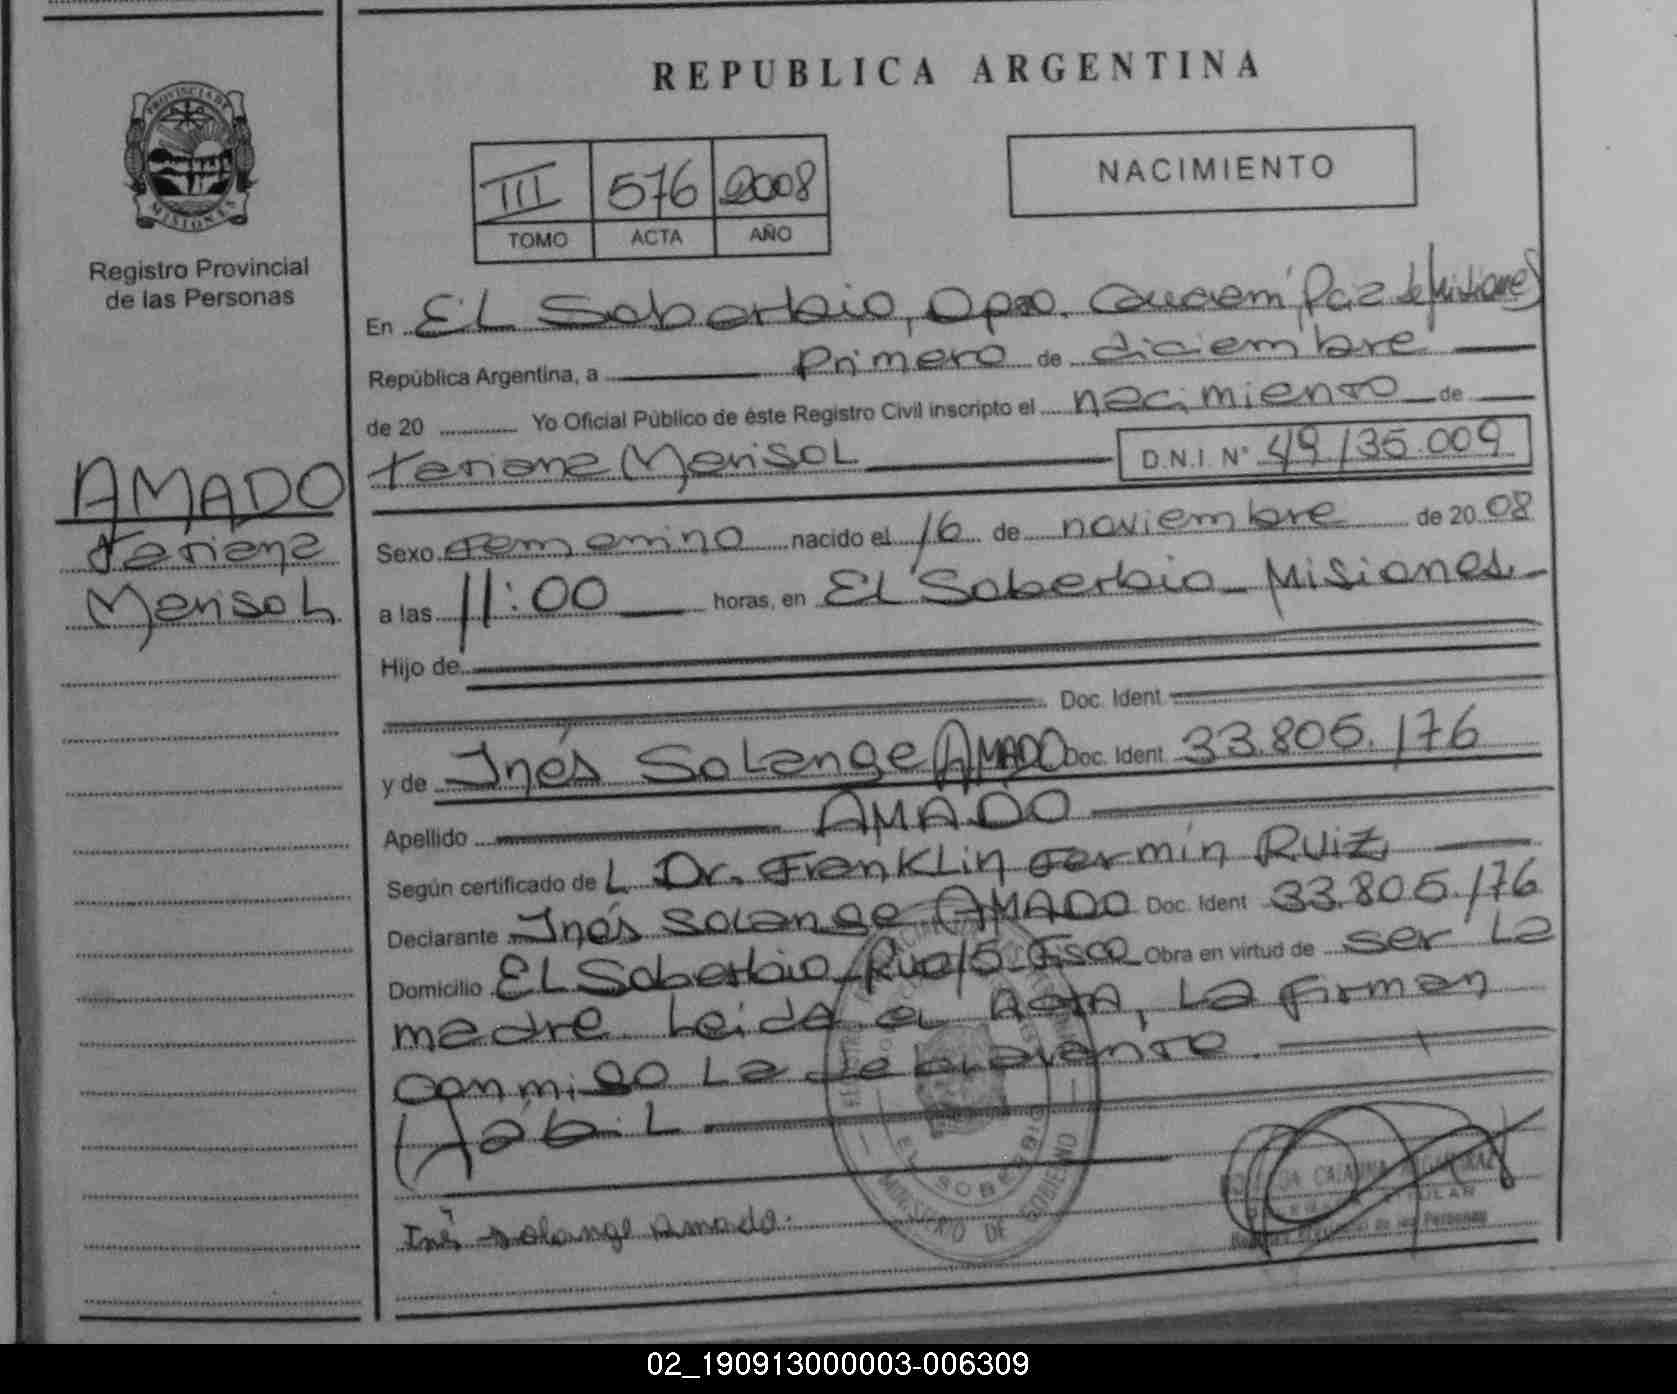 REPUBLICA ARGENTINA
PROVINCIA DE
MISIONES
Registro Provincial
de las Personas
III 576 2008
TOMO ACTA AÑO
NACIMIENTO
En El Soberbio, Dpto. Guaraní, Pcia de Misiones
República Argentina, a primero de diciembre
de 20 Yo Oficial Público de éste Registro Civil inscripto el nacimiento de
Tatiana Marisol D.N.I. N° 49.135.009
AMADO
Tatiana
Marisol
Sexo Femenino nacido el 16 de noviembre de 20 08
a las 11:00 horas, en El Soberbio Misiones
Hijo de
Doc. Ident
y de Inés Solange AMADO Doc. Ident 33.805.176
Apellido AMADO
Según certificado de L Dr. Franklin Fermín Ruiz
Declarante Inés Solange AMADO Doc. Ident 33.805.176
Domicilio El Soberbio Obra en virtud de ser la
madre. Leida el Acta, la firman
conmigo la
Hábil
EL SOBERBIO
MINISTERIO DE GOBIERNO
Inés solange Amado.
TITULAR
Registro Provincial de las Personas
02_190913000003-006309